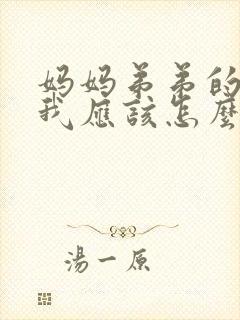 妈妈弟弟的
我应该怎麼
湯一原